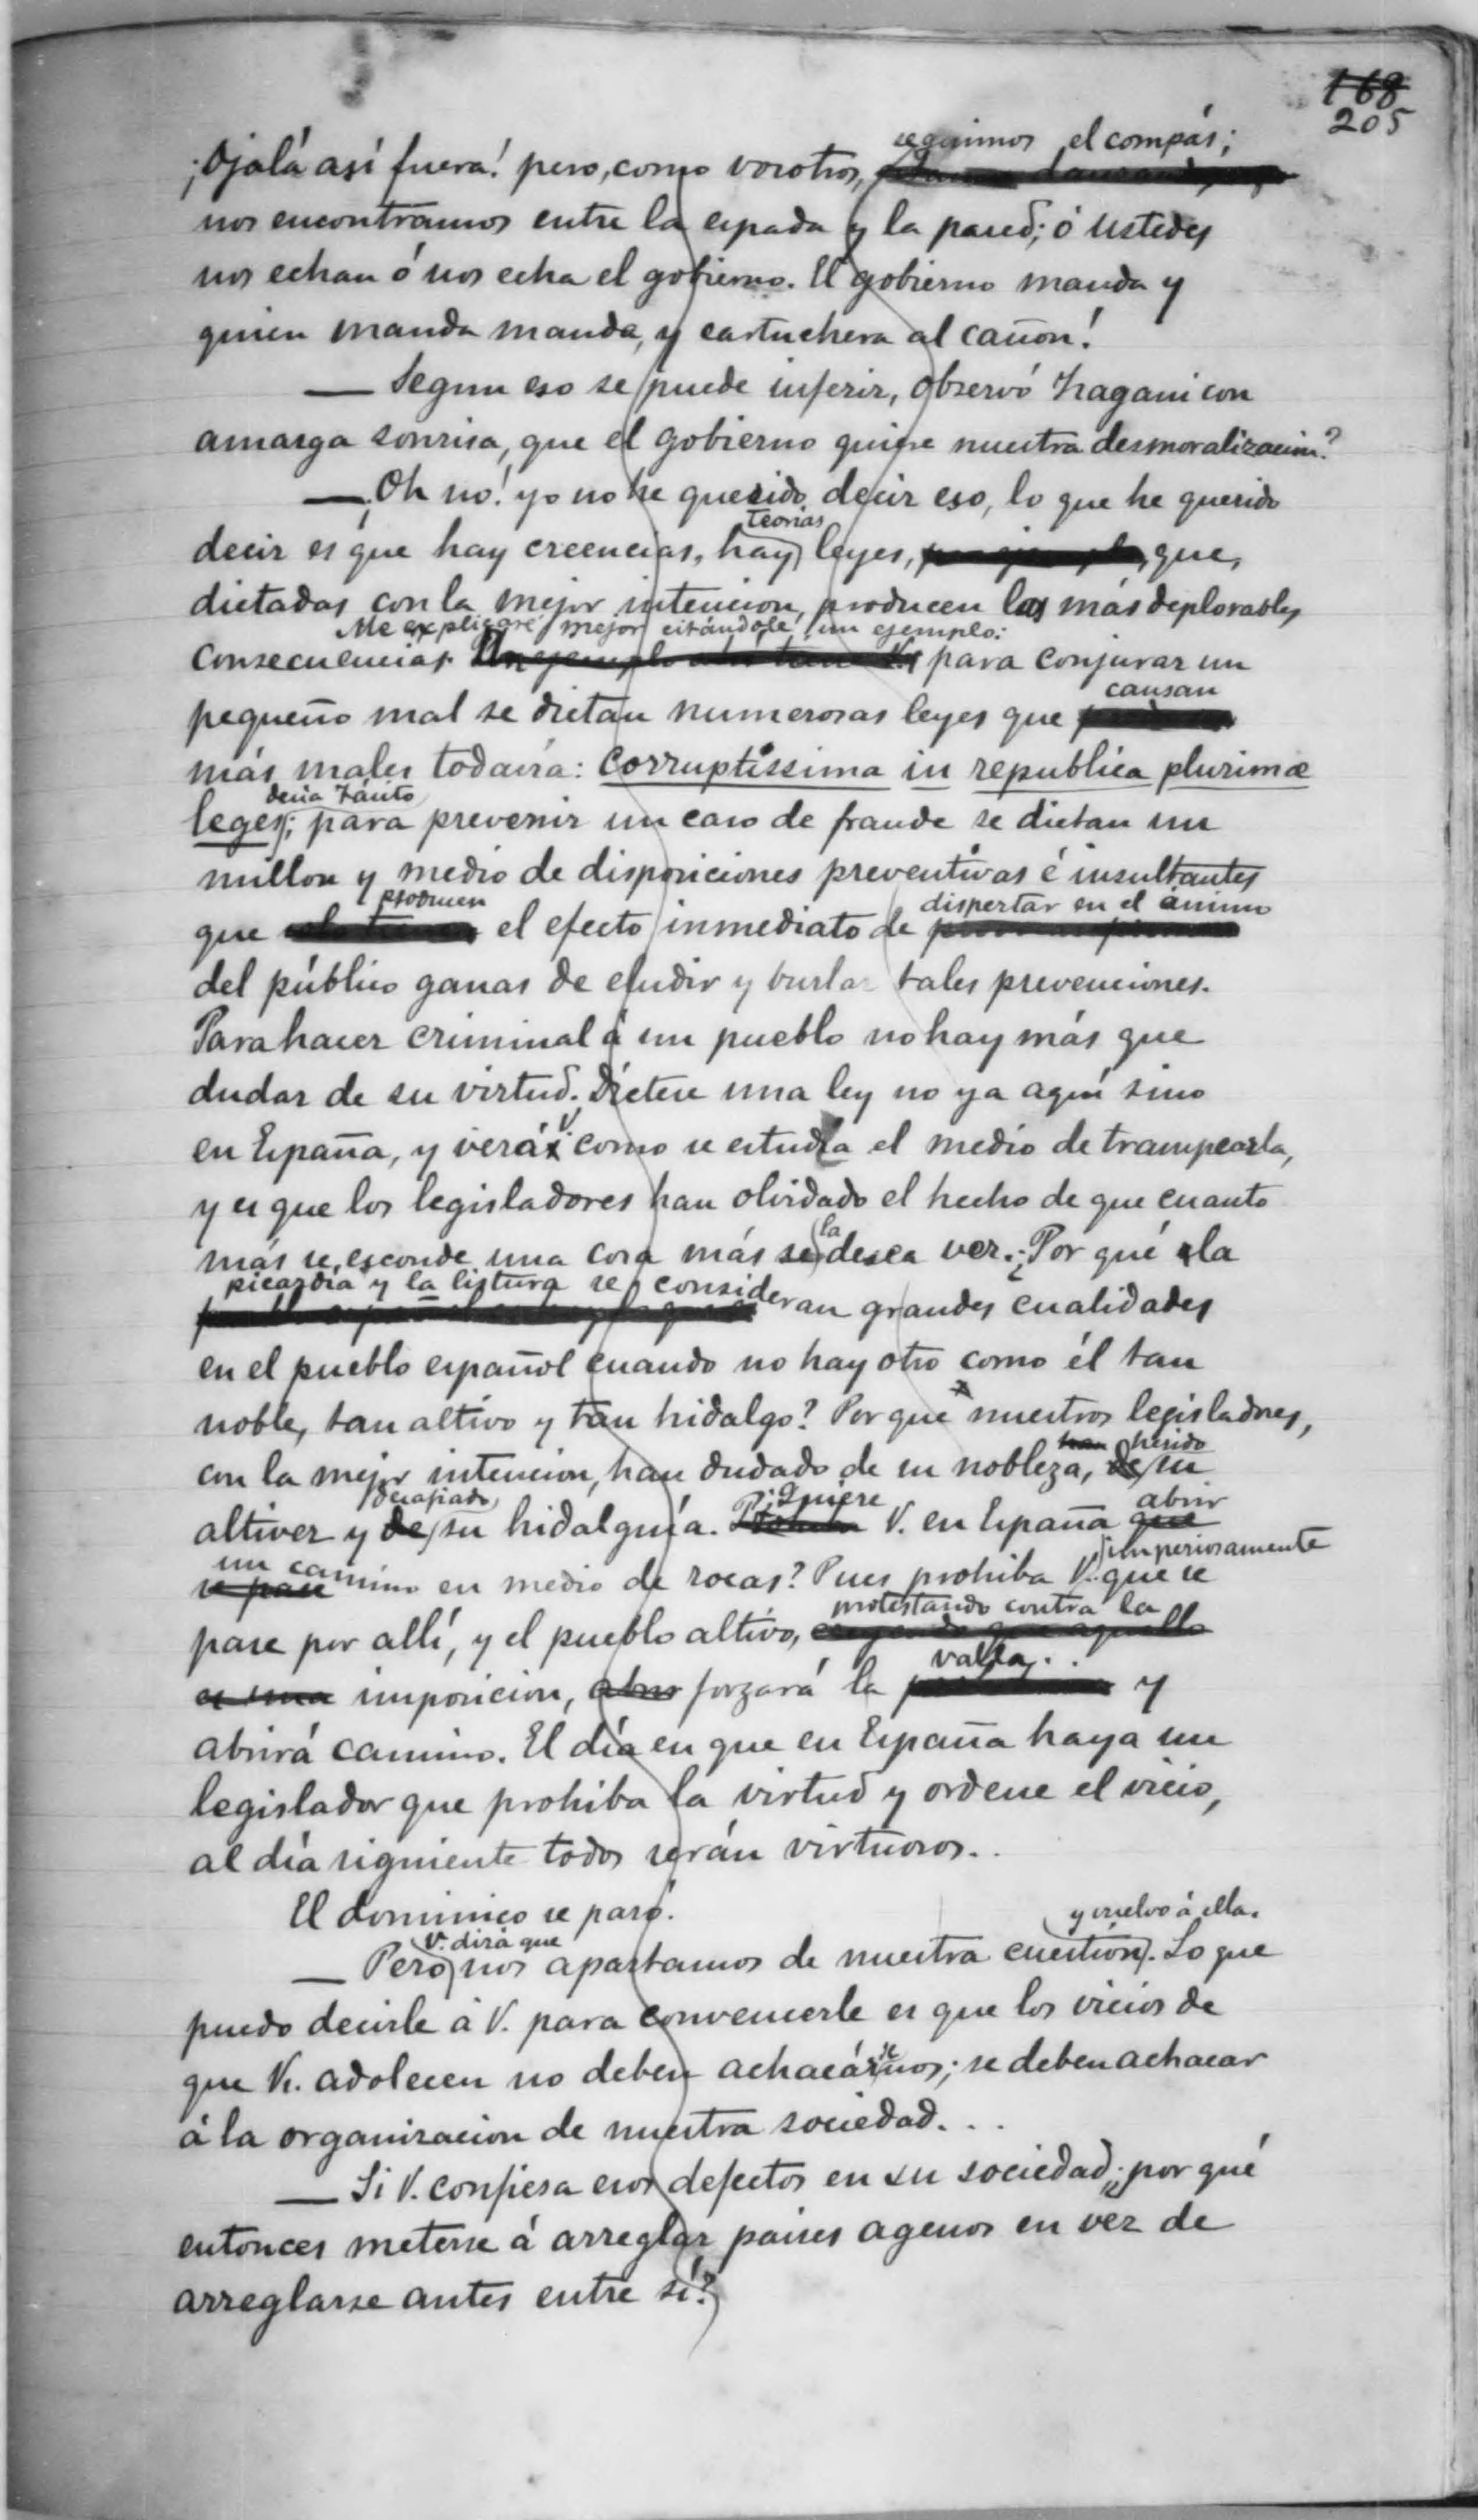 168
205
seguimos el compás;
¡Ojalá así fuera! pero, como vosotros,
nos encontramos entre la espada y la pared; ó ustedes
nos echan ó nos echa el gobierno. El gobierno manda y
quien manda manda, y cartuchera al cañon!
— Segun eso se puede inferir, observó Isagani con
amarga sonrisa, que el gobierno quiere nuestra desmoralizacion?
— ¡Oh no! yo no he querido decir eso, lo que he querido
teorías
decir es que hay creencias, hay leyes, que,
dictadas con la mejor intencion, producen las más deplorables
Me explicaré mejor citándole un ejemplo:
consecuencias. para conjurar un
causan
pequeño mal se dictan numerosas leyes que
más males todavía: corruptissima in republica plurimæ
decia Tácito
leges; para prevenir un caso de fraude se dictan un
millon y medio de disposiciones preventivas é insultantes
producen dispertar en el ánimo
que el efecto inmediato de
del público ganas de eludir y burlar tales prevenciones.
Para hacer criminal á un pueblo no hay más que
dudar de su virtud. Díctese una ley no ya aquí sino
V.
en España, y verá como se estudia el medio de trampearla,
y es que los legisladores han olvidado el hecho de que cuanto
la
más se esconde una cosa más se desea ver. ¿Por qué la
picardía y la listura se consideran grandes cualidades
en el pueblo español cuando no hay otro como él tan
noble, tan altivo y tan hidalgo? Porque nuestros legisladores,
han herido
con la mejor intencion, han dudado de su nobleza, de su
desafiado
altivez y de su hidalguía. ¿Quiere V. en España que abrir
se pase un camino en medio de rocas? Pues prohiba V. imperiosamente que se
protestando contra la
pase por allí, y el pueblo altivo, creyendo que aquello
valla..
es una imposicion, abrir forzará la y
abrirá camino. El día en que en España haya un
legislador que prohiba la virtud y ordene el vicio,
al día siguiente todos serán virtuosos..
El dominico se paró.
V. dirá que y vuelvo á ella.
— Pero nos apartamos de nuestra cuestion. Lo que
puedo decirle á V. para convencerle es que los vicios de
se
que Vs. adolecen no deben achacárnos; se deben achacar
á la organizacion de nuestra sociedad...
— Si V. confiesa esos defectos en su sociedad, ¿por qué
entonces meterse á arreglar paises agenos en vez de
arreglarse antes entre sí?